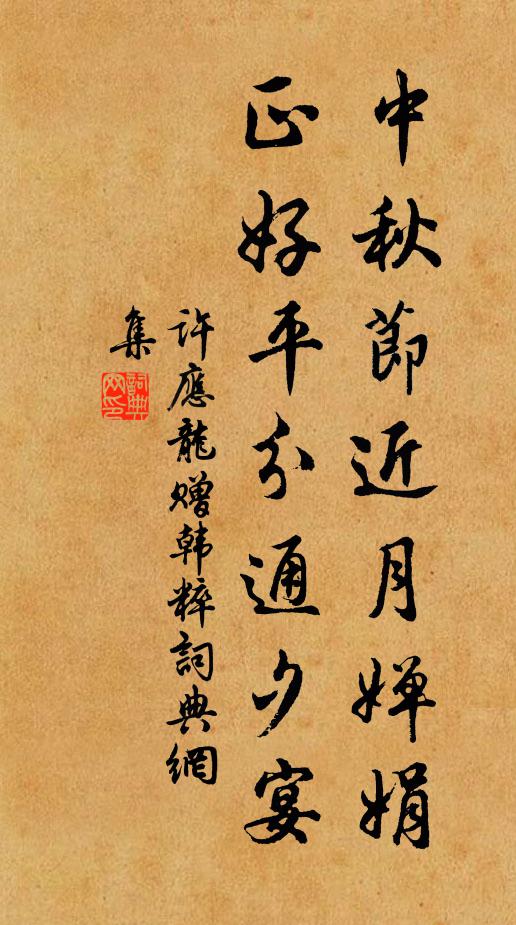 中秋節近月嬋娟
正好平分通夕宴
許應龍贈韩粹詞典網
集
詞典
网印